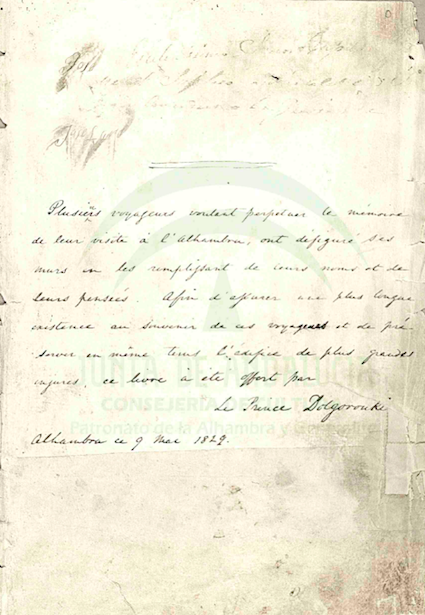 Plusieurs voyageurs voulant perpetuer la mémoire
de leur visite à l'Alhambra, ont défiguré ses
murs en les remplissant de leurs noms et de
leurs pensées. Afin d'assurer une plus longue
existence au souvenir de ces voyageurs et de pré
server en même tems l'édifice de plus grandes
injures, ce livre a été offert par
Le Prince Dolgorouki
Alhambra ce 9 Mai 1829.
JUNTA DE ANDALUCIA
CONSEJERÍA DE CULTURA
Patronato de la Alhambra y Generalife